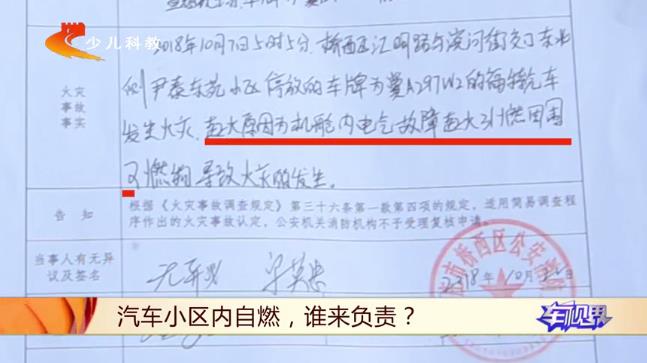 少儿科教
2018年10月7日5时5分,桥西区汇明路与滨河街交口东北
火灾
事故
事实
侧尹泰东苑小区停放的车牌为冀A297W2的福特汽车
发生火灾,起火原因为机舱内电气故障起火引燃周围
可燃物导致火灾的发生。
告 知
根据《火灾事故调查规定》第三十六条第一款第四项的规定,适用简易调查程
序作出的火灾事故认定,公安机关消防机构不予受理复核申请。
当事人有无异
议及签名
无异议
市桥西区公安消防
2018年10月
汽车小区内自燃,谁来负责?
车视界